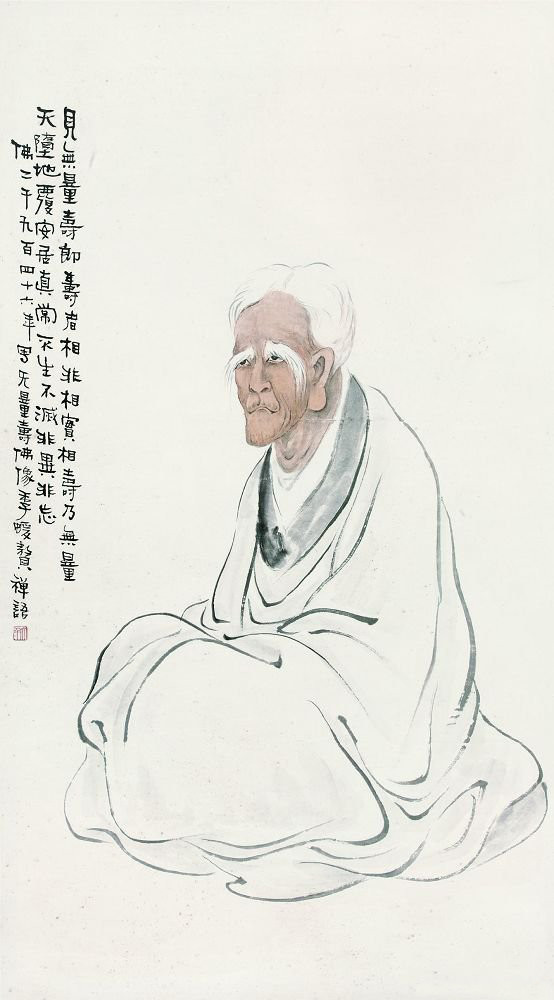 見無量壽即壽者相非相實相壽乃無量
天墮地覆安居真常不生不滅非異非忘
佛二千九百四十六年寫无量壽佛像季蝯贅禪語